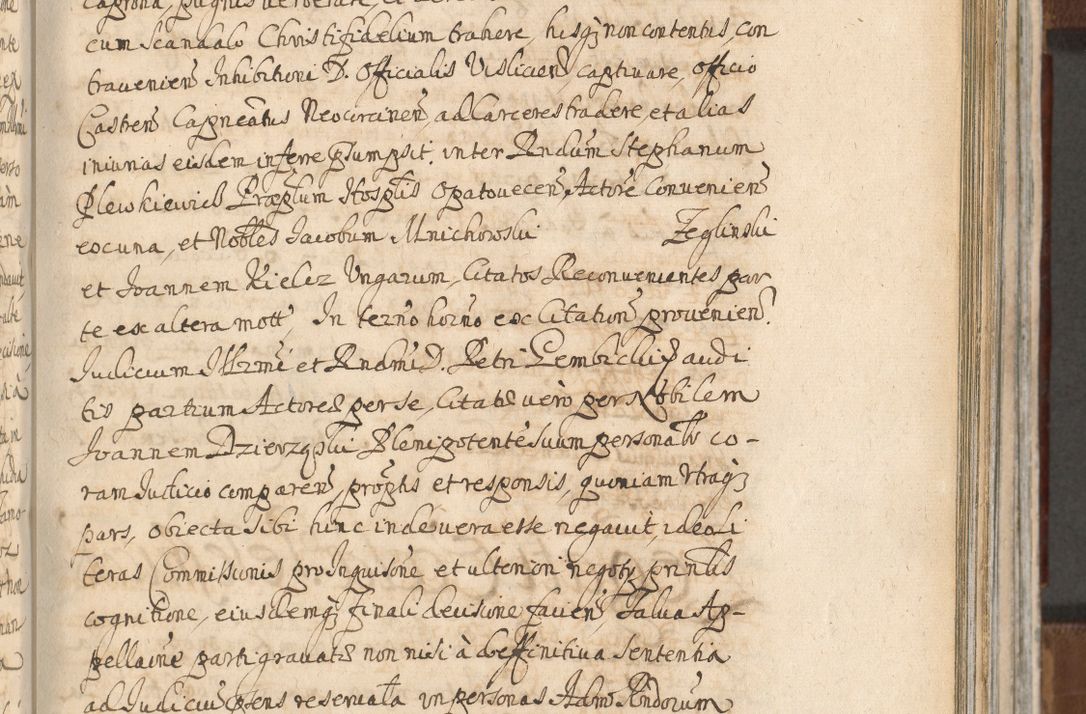 cum scandalo Christi fidelium trahere, hisq; non contentus, con
traveniens Inhibitioni D. Officialis Vislicien, captivare, officio
Castren Capneatus Neocorcinen, ad carceres tradere, et alias
iniurias eisdem inferre psumpsit, inter Rndum Stephanum
Plewkiewicz Præptum Hosptis Opatovecen, Actorē Convenien
eo cuna, et Nobles Jacobum Mnichowski Zeglinski
et Joannem Kielcz Ungarum, Citatos Reconvenientes par
te ex altera mott, In termō hornō ex Citation provenien.
Judicium Illrmi et Rndmi D. Petri Gembicki audi
tis partium Actore per se, Citatis verò per Nobilem
Joannem Dzierzqski Plenipotentē suum personalr co-
ram Judicio comparen, proptis et responsis, quoniam utraq;
pars, obiecta sibi hinc inde vera esse negavit, ideo li
teras Commissionis pro Inquisōne et ulteriori negoty printis
cognitione, eiusdemq; finali decisione facien, salva Ap-
pellaōne parti gravatæ non nisi à deffinitiva sententia
ad Judiciū psens reservata in personas Adm Rndorum